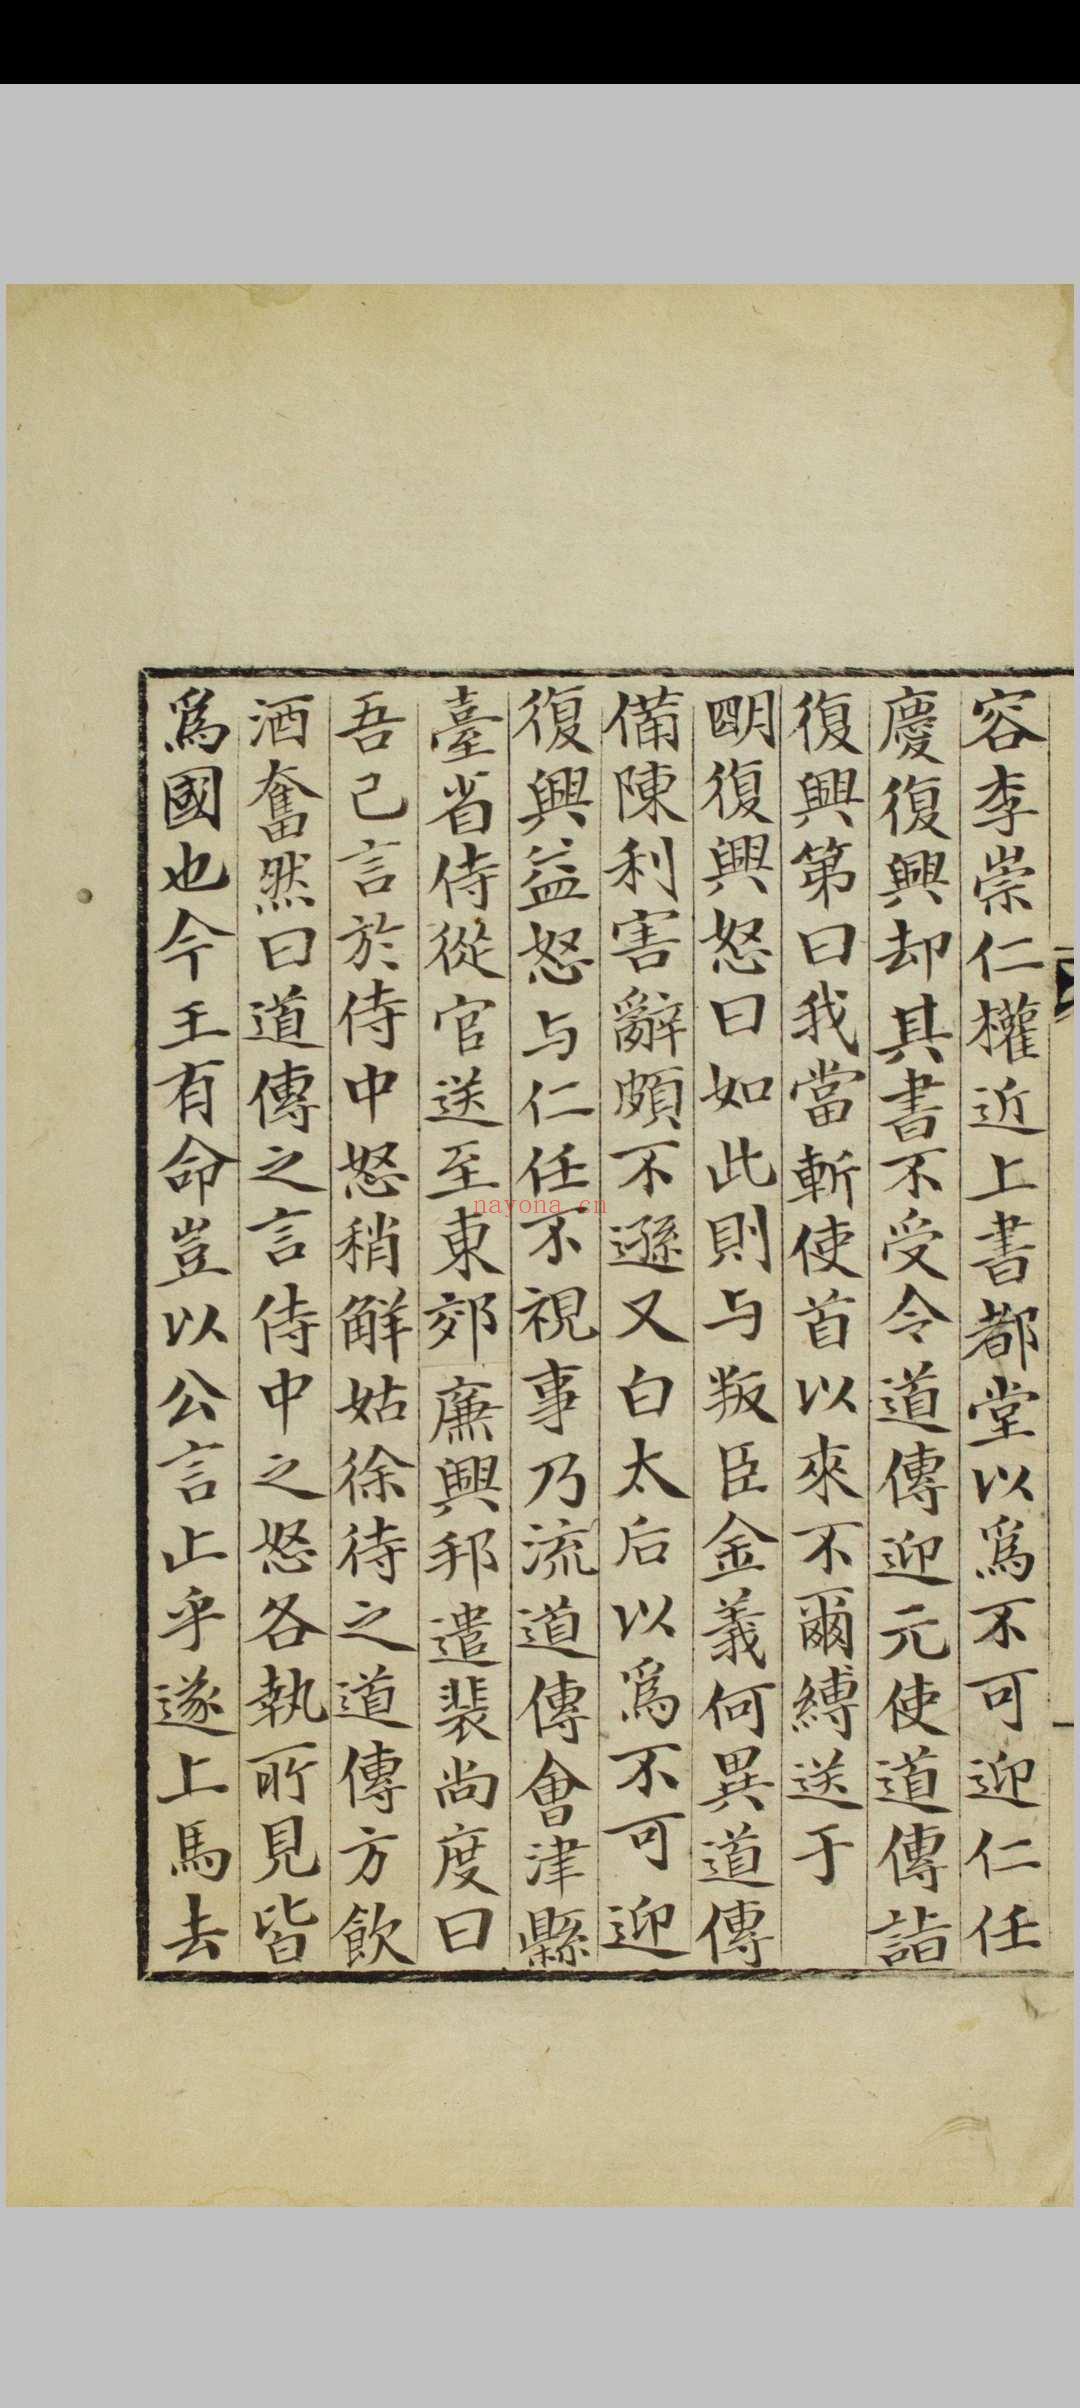 容李崇仁權近上書都堂以爲不可迎仁任
慶復興却其書不受令道傳迎元使道傳詣
復興第曰我當斬使首以來不爾縛送于
朙復興怒曰如此則与叛臣金義何異道傳
備陳利害辭頗不遜又白太后以爲不可迎
復興益怒与仁任不視事乃流道傳會津縣
臺省侍從官送至東郊廉興邦遣裴尚度曰
吾已言於侍中怒稍觧姑徐待之道傳方飲
酒奮然曰道傳之言侍中之怒各執所見皆
爲國也今王有命豈以公言止乎遂上馬去
nayona.cn